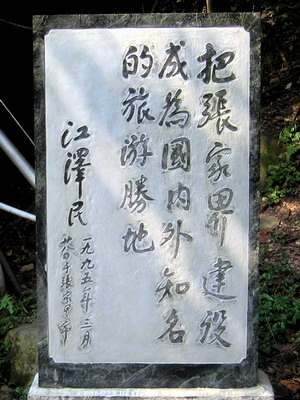 把張家界建设
成為國内外知名
的旅游勝地
江澤民
一九九五年三月
於张家界市